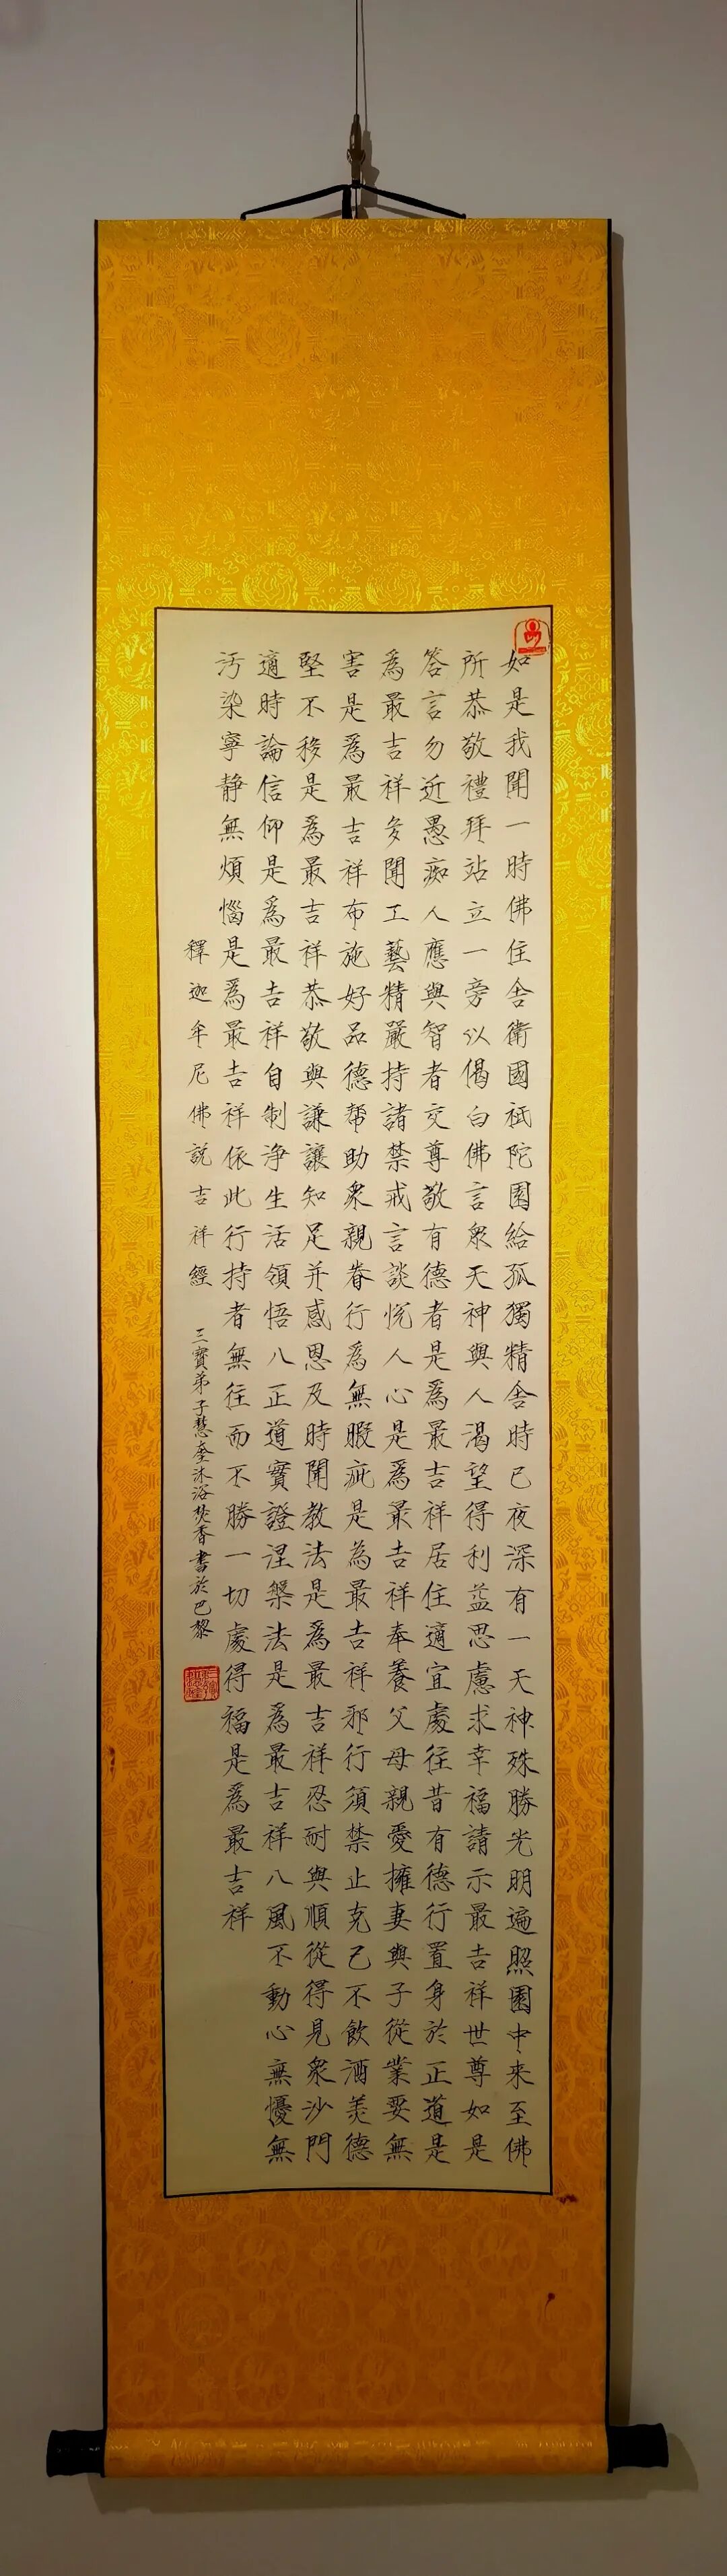 如是我聞一時佛住舍衛國祇陀園給孤獨精舍時已夜深有一天神殊勝光明遍照園中来至佛
所恭敬禮拜站立一旁以偈白佛言眾天神與人渴望得利益思慮求幸福請示最吉祥世尊如是
答言勿近愚痴人應與智者交尊敬有德者是為最吉祥居住適宜處往昔有德行置身於正道是
為最吉祥多聞工藝精嚴持諸禁戒言談悅人心是為最吉祥奉養父母親愛擁妻與子從業要無
害是爲最吉祥布施好品德帮助衆親眷行爲無暇疵是為最吉祥邪行須禁止克己不飲酒美德
堅不移是爲最吉祥恭敬與謙讓知足并感恩及時聞教法是爲最吉祥忍耐與順從得見衆沙門
適時論信仰是爲最吉祥自制净生活領悟八正道實證涅槃法是爲最吉祥八風不動心無憂無
污染寧静無煩惱是爲最吉祥依此行持者無往而不勝一切處得福是爲最吉祥
釋迦牟尼佛説吉祥經
三寶弟子慧奎沐浴焚香書於巴黎